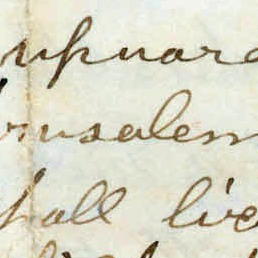 upward
Jerusalem
shall live